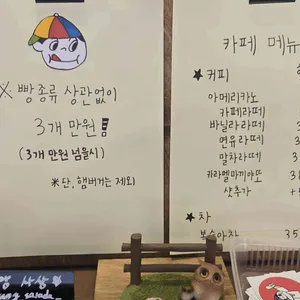 ※ 빵종류 상관없이
3개 만원!!
(3개 만원 넘을시)
※단, 햄버거는 제외
카페 메뉴
★ 커피
아메리카노
카페라떼
바닐라라떼
연유라떼
말차라떼
카라멜마끼아또
샷추가
★ 차